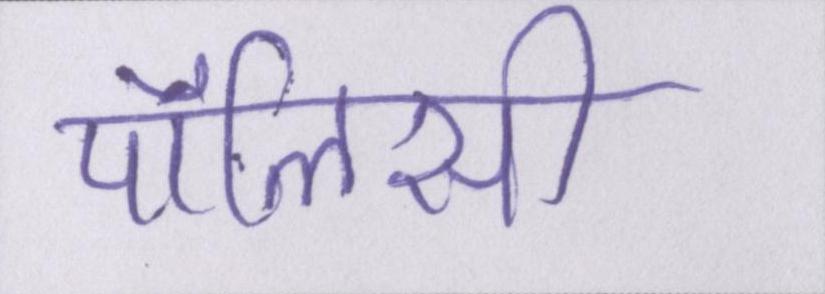 पॉलिसी